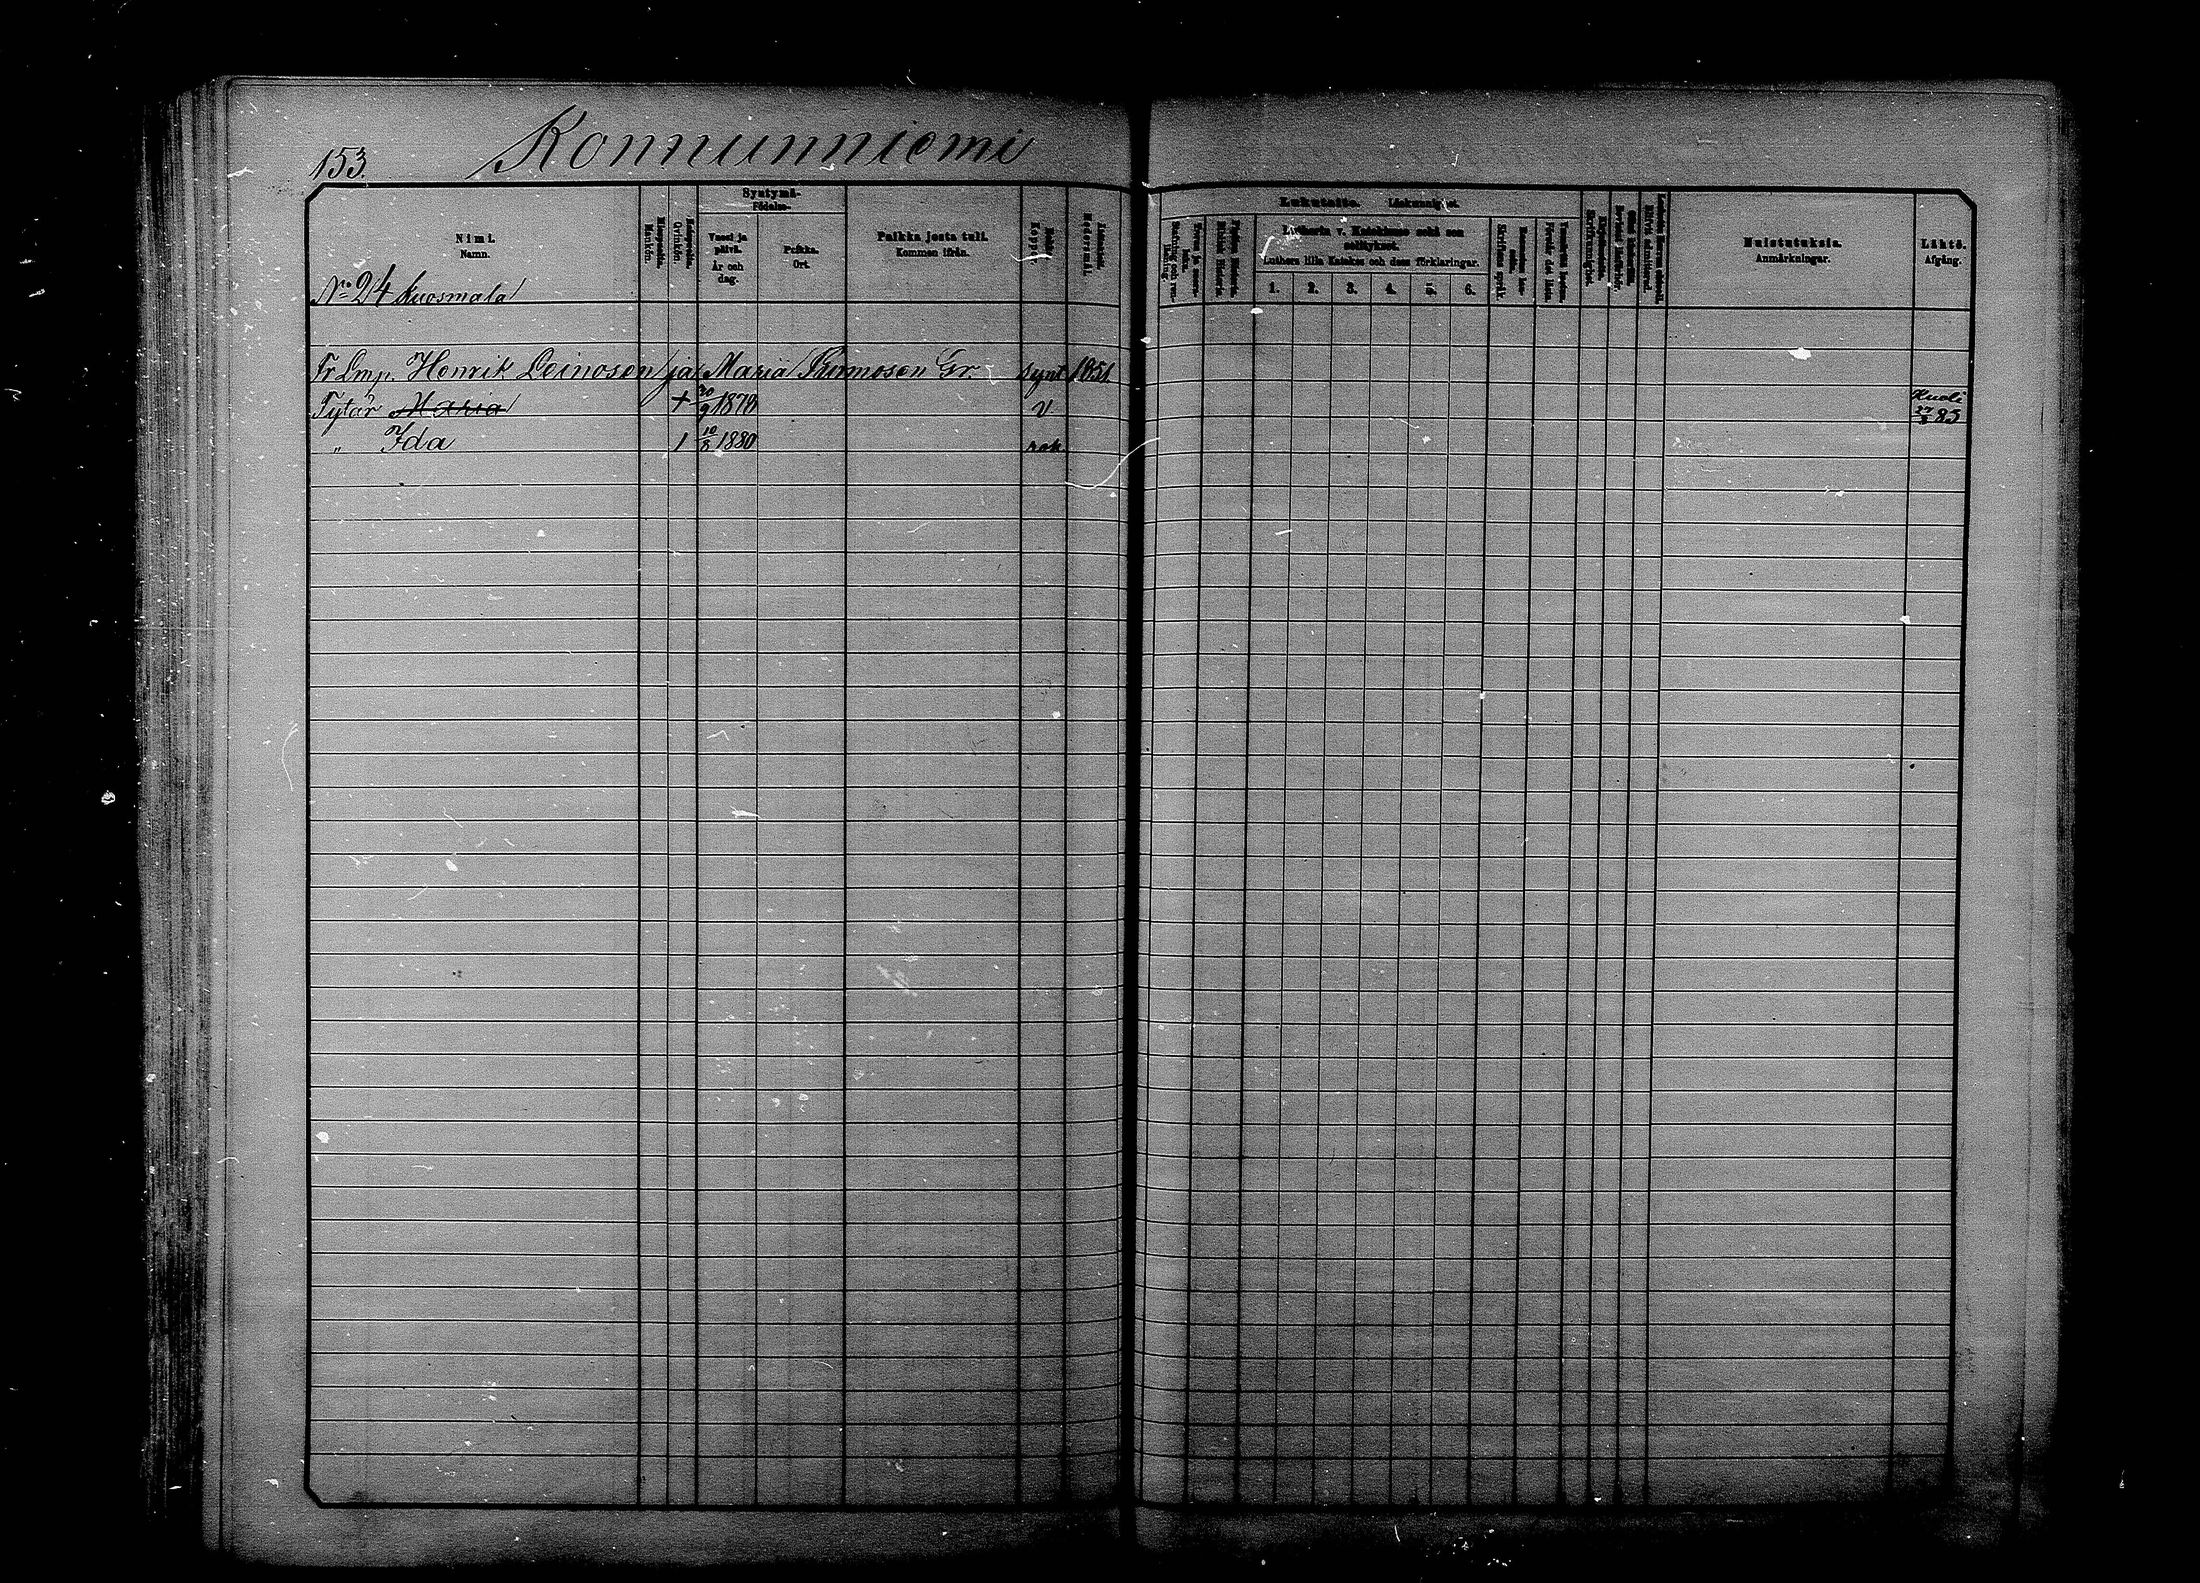 153. Konnunniemi
Nimi.
Namn.
Miespuolta.
Mankön.
Naispuolta.
Qvinkön.
Syntymä-
Födelse-
Vuosi ja päivä.
År och dag.
Paikka.
Ort.
Paikka josta tuli.
Kommen ifrån.
Rokko.
Koppor.
Lukutaito. Läskunnighet.
Lutherin v. Katekismus sekä sen
selitykset.
Luthers lilla Katekes och dess förklaringar.
1. 2. 3. 4. 5. 6.
Muistutuksia.
Anmärkningar.
Lähtö.
Afgång.
No 24 Kuosmala
Tr Lmp. Henrik Leinosen ja Maria Gr. synt 1851.
Tytär Maria + 20/9 1879 v. Kuoli 27/3 85
" Ida 1 10/8 1880 rok.